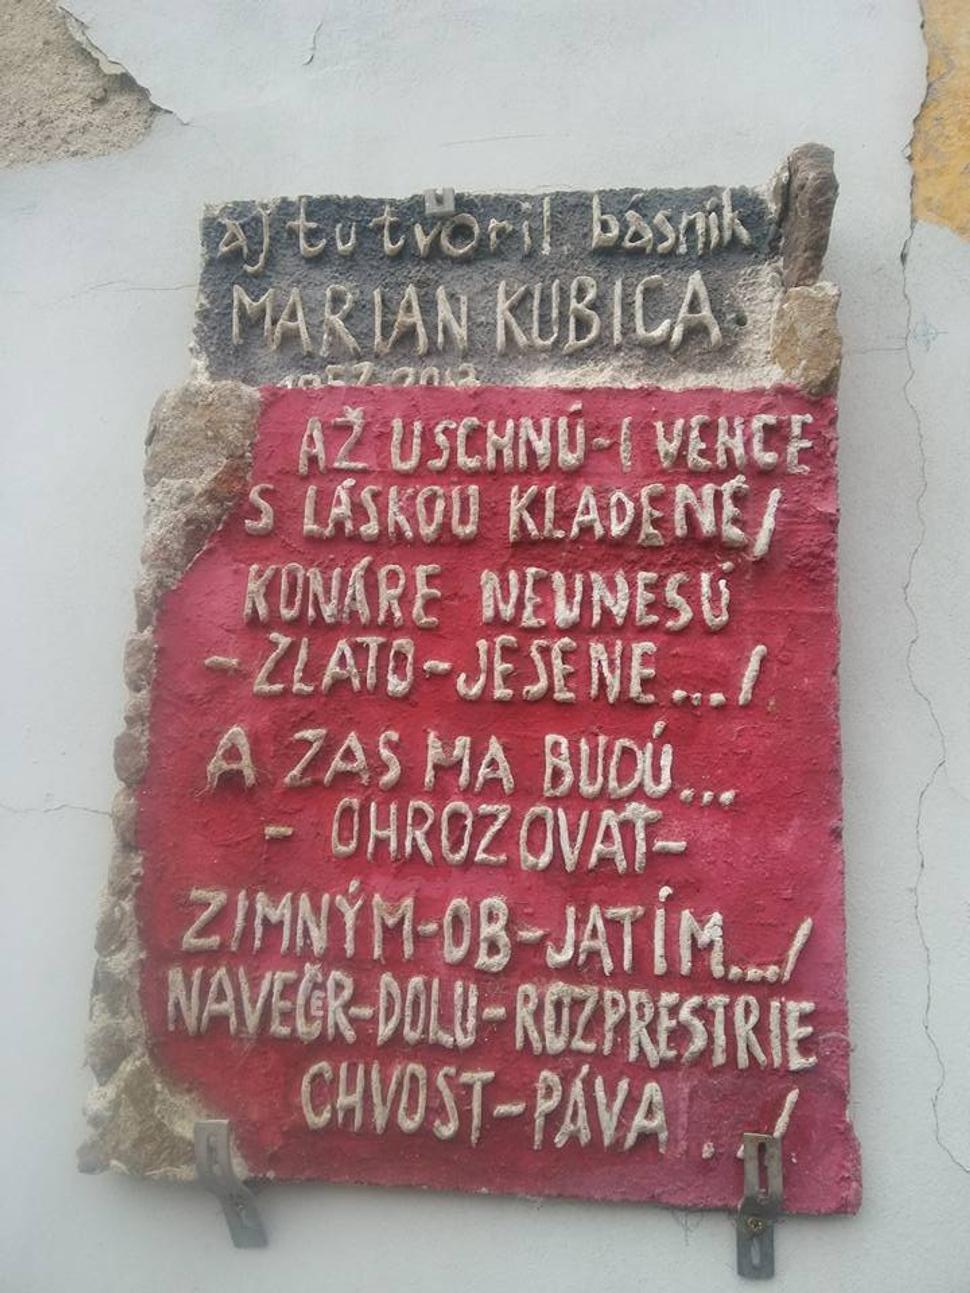 aj tu tvoril básnik
MARIAN KUBICA.
1957-2013
AŽ USCHNÚ-I VENCE
S LÁSKOU KLADENÉ/
KONÁRE NEUNESÚ
-ZLATO-JESENE.../
A ZAS MA BUDÚ...
- OHROZOVAŤ-
ZIMNÝM-OB-JATÍM.../
NAVEČER-DOLU-ROZPRESTRIE
CHVOST-PÁVA ../